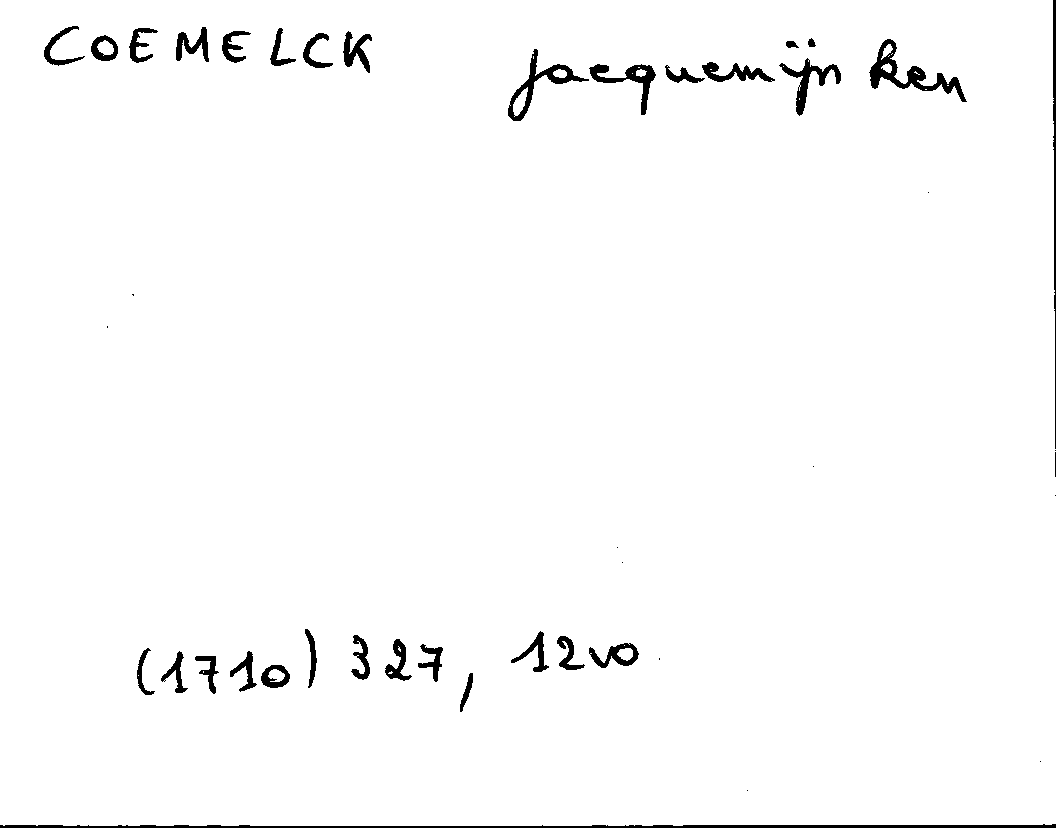 COEMELCK Jacquemijn ken
(1710) 327, 12vo